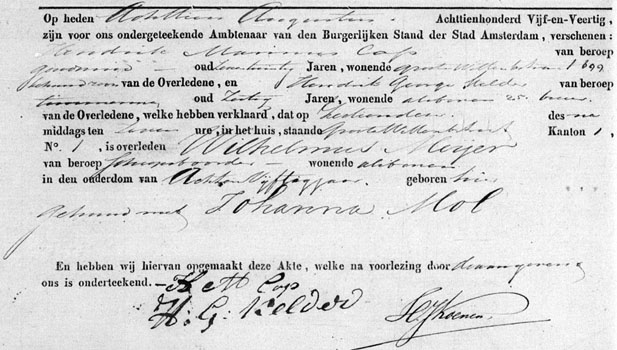 Op heden Achttien Augustus Achttienhonderd Vijf-en-Veertig,
zijn voor ons ondergeteekende Ambtenaar van den Burgerlijken Stand der Stad Amsterdam, verschenen:
Hendrik Marinus Cop van beroep
oud Jaren, wonende 1 699
van de Overledene, en Hendrik George Kelder van beroep
timmerman, oud Zestig Jaren, wonende
van de Overledene, welke hebben verklaard, dat op Zestienden des na
middags ten Zeven ure, in het huis, staande Groote Wittenburgerstraat Kanton 1,
No. 1, is overleden Wilhelmus Meyer
van beroep wonende
in den ouderdom van Acht en Vijftig jaar, geboren hier
gehuwd met Johanna Mol
En hebben wij hiervan opgemaakt deze Akte, welke na voorlezing door de aangevers
ons is onderteekend. — H M Cop
H. G. Kelder